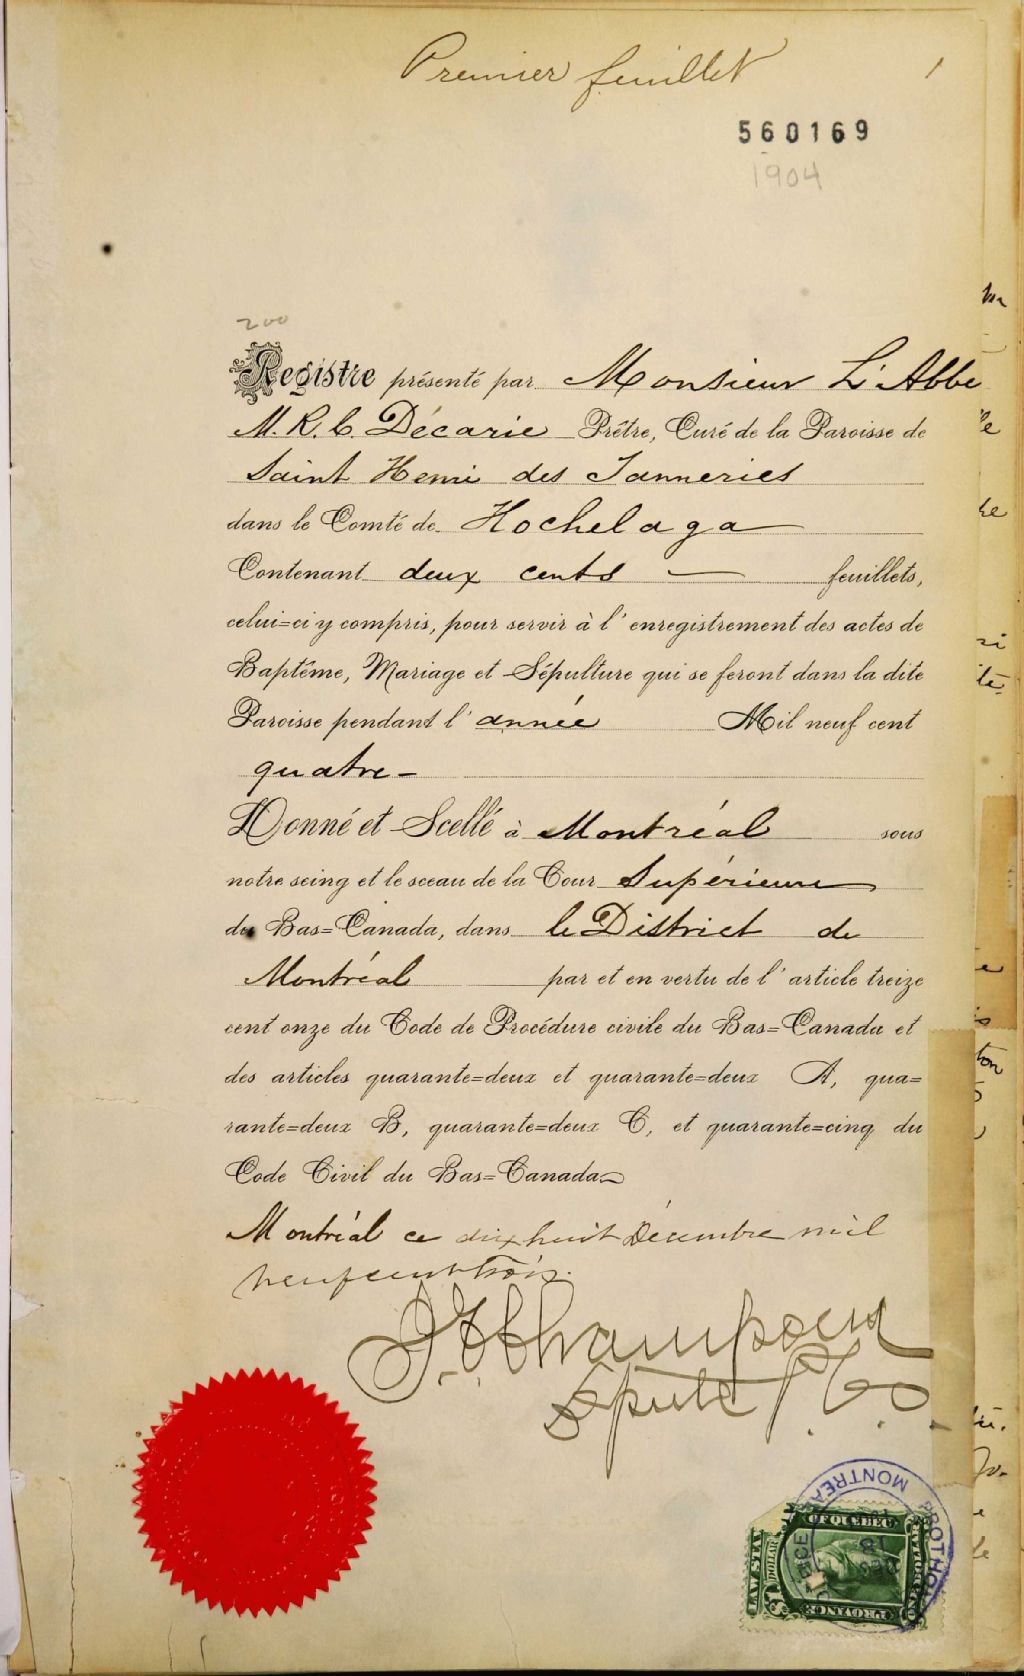 Premier feuillet 1
560169
1904
200
Registre présenté par Monsieur L'Abbé
M. R. C. Décarie Prêtre, Curé de la Paroisse de
Saint Henri des Tanneries
dans le Comté de Hochelaga
Contenant deux cents — feuillets,
celui=ci y compris, pour servir à l'enregistrement des actes de
Baptême, Mariage et Sépulture qui se feront dans la dite
Paroisse pendant l'année Mil neuf cent
quatre —
Donné et Scellé à Montréal sous
notre seing et le sceau de la Cour Supérieure
du Bas=Canada, dans le District de
Montréal par et en vertu de l'article treize
cent onze du Code de Procédure civile du Bas=Canada et
des articles quarante=deux et quarante=deux A, qua=
rante=deux B, quarante=deux C, et quarante=cinq du
Code Civil du Bas=Canada
Montréal ce dix huit Décembre mil
neuf cent trois.
Députe P. C. S.
MONTREAL
PROTHO
OFFICE
DEC
18
LAW STAMP
PROVINCE
QUEBEC
$1 DOLLAR